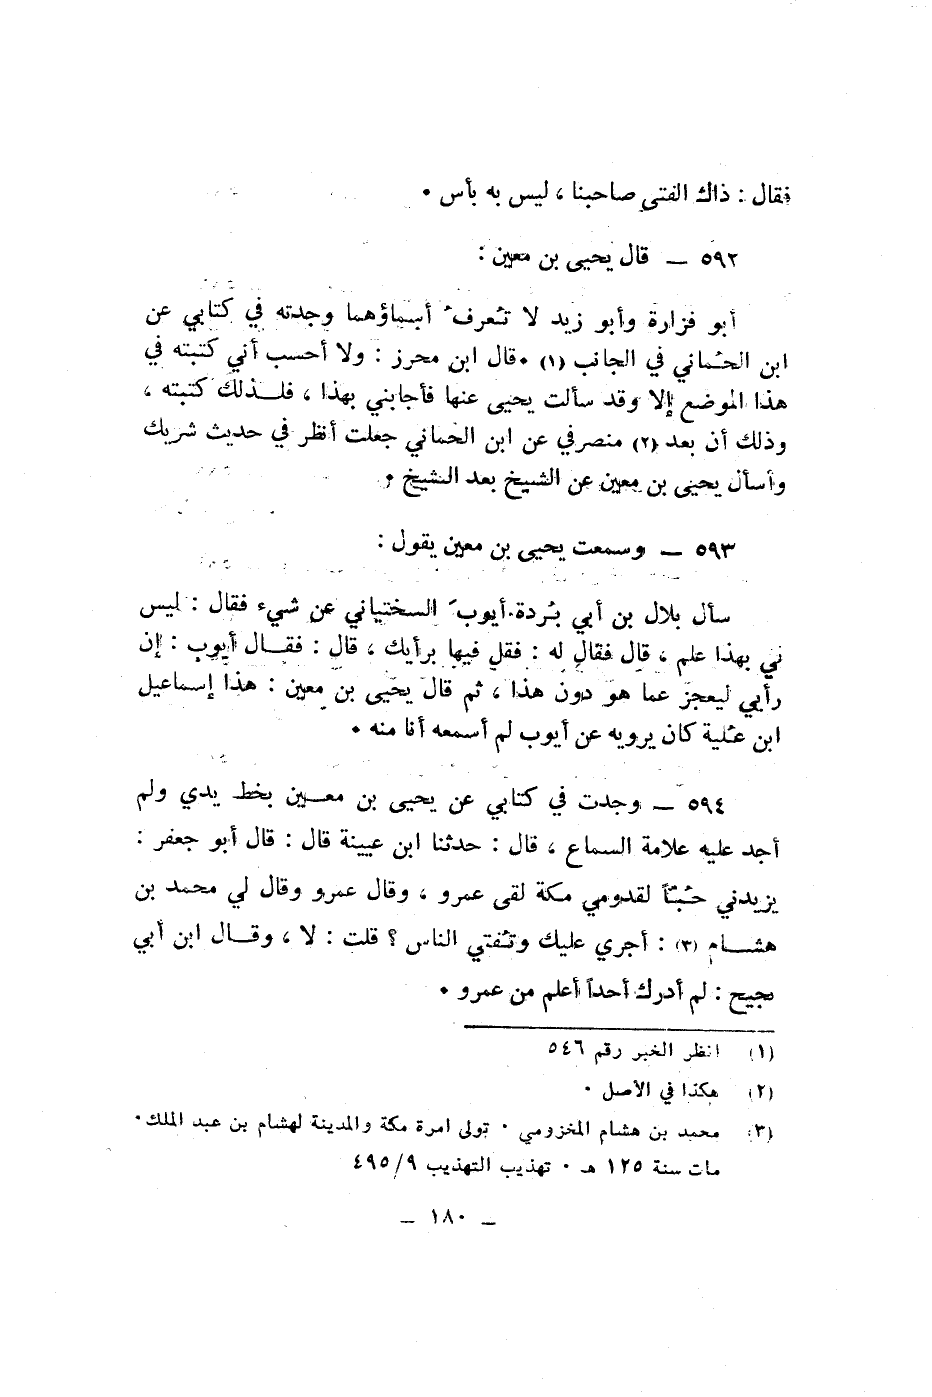 فقال : ذاك الفتى صاحبنا ، ليس به بأس ٠
٥٩٢ ــ قال يحيى بن معين :
أبو فزارة وأبو زيد لا تُعرفُ أسماؤهما وجدته في كتابي عن
ابن الحمّاني في الجانب (١) ٠ قال ابن محرز : ولا أحسب أني كتبته في
هذا الموضع إلا وقد سألت يحيى عنها فأجابني بهذا ، فلـذلك كتبته ،
وذلك أن بعد (٢) منصرفي عن ابن الحماني جعلت أنظر في حديث شريك
وأسأل يحيى بن معين عن الشيخ بعد الشيخ ٠
٥٩٣ ــ وسمعت يحيى بن معين يقول :
سأل بلال بن أبي بُردة أيوبَ السختياني عن شيء فقال : ليس
لي بهذا علم ، قال فقال له : فقل فيها برأيك ، قال : فقـال أيوب : إن
رأيي ليعجز عما هو دون هذا ، ثم قال يحيى بن معين : هذا إسماعيل
ابن عُلية كان يرويه عن أيوب لم أسمعه أنا منه ٠
٥٩٤ ــ وجدت في كتابي عن يحيى بن معـين بخط يدي ولم
أجد عليه علامة السماع ، قال : حدثنا ابن عيينة قال : قال أبو جعفر :
يزيدني حُبّاً لقدومي مكة لقى عمرو ، وقال عمرو وقال لي محمد بن
هشـام (٣) : أجري عليك وتُفتي الناس ؟ قلت : لا ، وقـال ابن أبي
نجيح : لم أدرك أحداً أعلم من عمرو ٠
(١) انظر الخبر رقم ٥٤٦
(٢) هكذا في الأصل ٠
(٣) محمد بن هشام المخزومي ٠ تولى امرة مكة والمدينة لهشام بن عبد الملك ٠
مات سنة ١٢٥ هـ ٠ تهذيب التهذيب ٤٩٥/٩
ــ ١٨٠ ــ